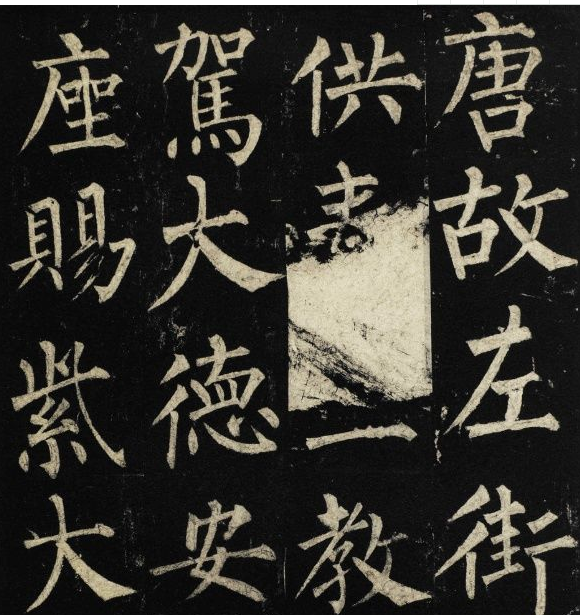 唐故左街
供教
駕大德安
座賜紫大